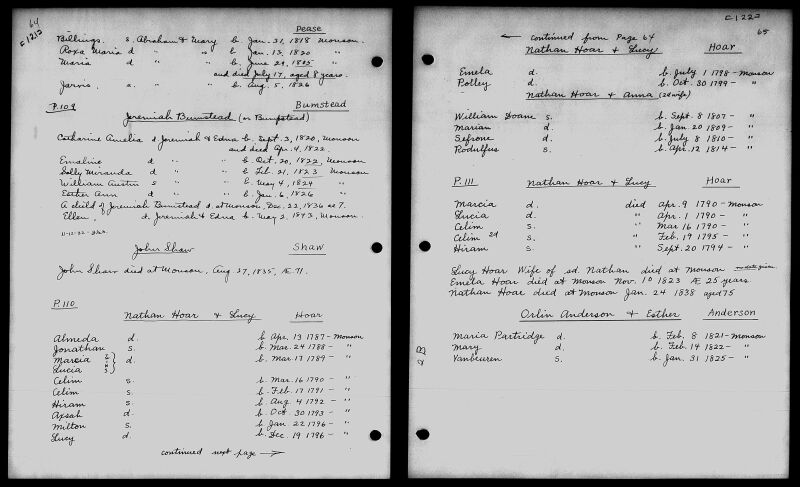 64
C1223
Pease
Billings s. Abraham & Mary b. Jan. 31, 1818 Monson.
Roxa Maria d " " b. Jan. 13, 1820 "
Maria d " " b. June 29, 1805 "
and died July 17, aged 8 years.
Jarvis, s. " " b. Aug. 5, 1826
P.109 Bumstead
Jeremiah Bumstead (or Bumpstead)
Catharine Amelia d Jeremiah & Edna b. Sept. 3, 1820, Monson
and died Apr. 4, 1822.
Emaline d " " b. Oct. 20, 1822, Monson
Solly Miranda d " " b. Feb. 21, 1823 Monson
William Austin s " " b. May 4, 1824 "
Esther Ann d " " b. Jan. 6, 1826 "
A child of Jeremiah Bumstead d. at Monson, Dec. 22, 1836 ae 7.
Ellen, d. Jeremiah & Edna b. May 2, 1843, Monson.
John Shaw Shaw
John Shaw died at Monson, Aug. 27, 1835, Æ 71.
P.110
Nathan Hoar & Lucy Hoar
Almeda d. b. Apr. 13 1787 - Monson
Jonathan s. b. Mar. 24 1788 - "
Marcia } d. b. Mar. 17 1789 - "
Lucia
Celim s. b. Mar. 16 1790 - "
Celim s. b. Feb. 17 1791 - "
Hiram s. b. Aug. 4 1792 - "
Axsah d. b. Oct. 30 1793 - "
Milton s. b. Jan. 22 1796 - "
Lucy d. b. Dec. 19 1796 - "
continued next page →
C1223
65
← continued from Page 64
Nathan Hoar & Lucy Hoar
Emela d. b. July 1 1798 - Monson
Polley d. b. Oct. 30 1799 - "
Nathan Hoar & Anna (2d wife)
William Doane s. b. Sept. 8 1807 - "
Marian d. b. Jan. 20 1809 - "
Sefrone d. b. July 8 1810 - "
Rodulfus s. b. Apr. 12 1814 - "
P.111 Nathan Hoar & Lucy Hoar
Marcia d. died Apr. 9 1790 - Monson
Lucia d. " Apr. 1 1790 - "
Celim s. " Mar 16 1790 - "
Celim 2d s. " Feb. 19 1795 - "
Hiram s. " Sept. 20 1794 - "
Lucy Hoar Wife of sd. Nathan died at Monson no date given
Emela Hoar died at Monson Nov. 10 1823 Æ 25 years
Nathan Hoar died at Monson Jan. 24 1838 aged 75
Orlin Anderson & Esther Anderson
Maria Partridge d. b. Feb. 8 1821 - Monson
Mary d. b. Feb. 14 1822 - "
Vanbeuren s. b. Jan. 31 1825 - "